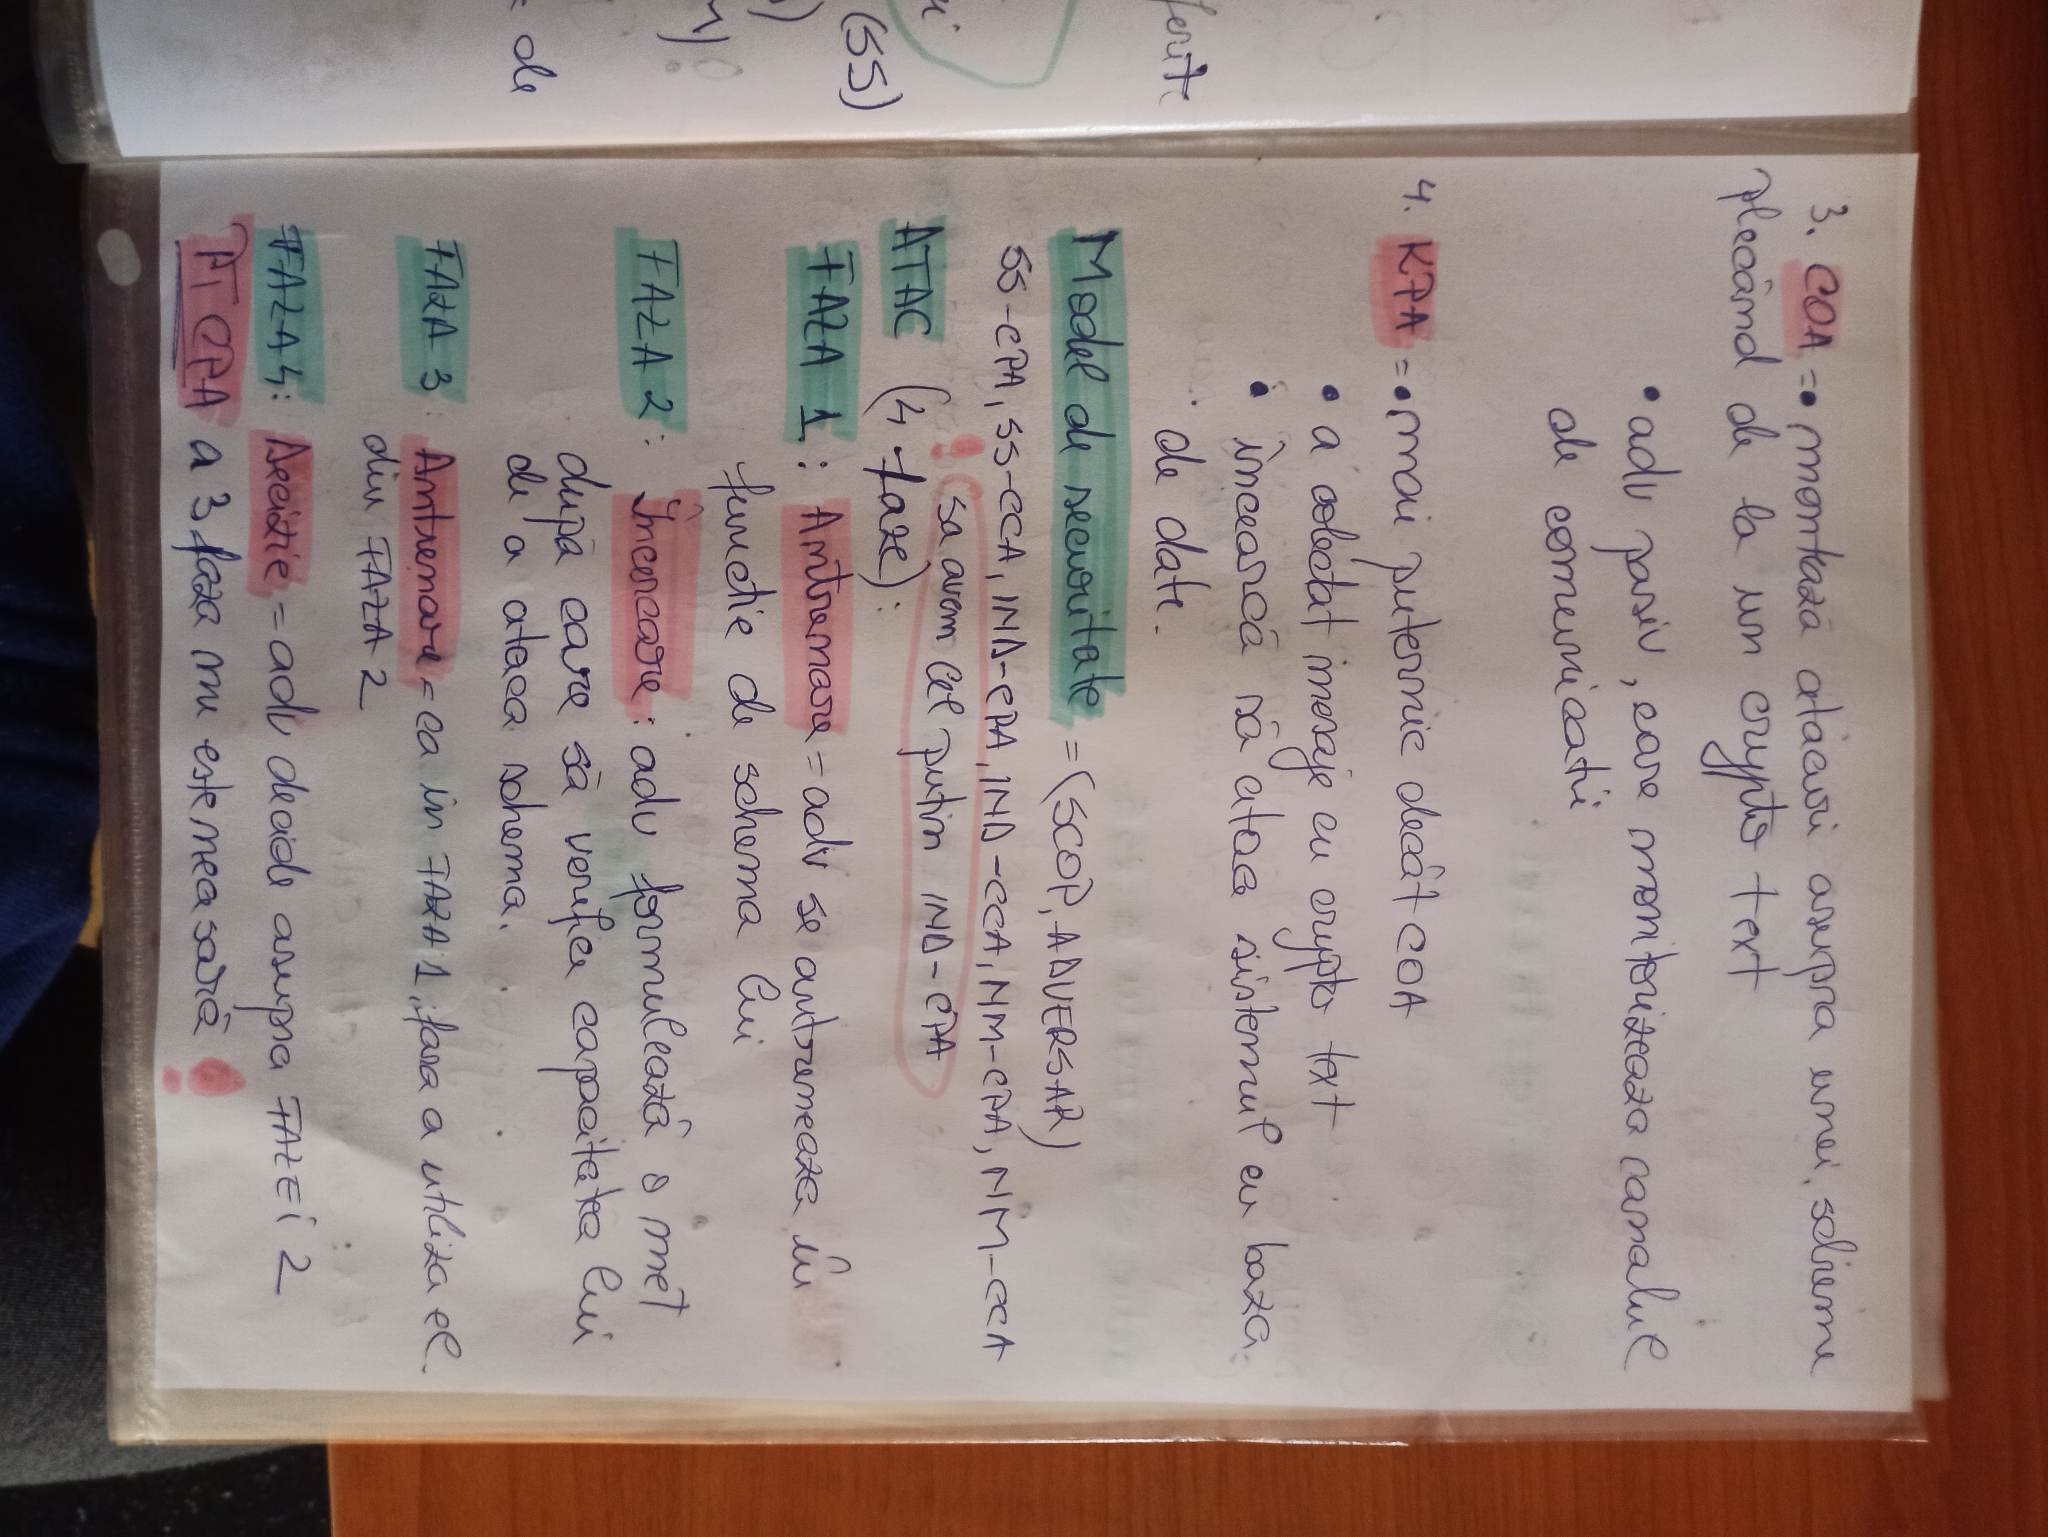 3. COA = • montază atacuri asupra unei scheme
plecând de la un crypto text
• adv pasiv, care monitorizeaza canalul
de comunicatii
4. KPA = • mai puternic decât COA
• a colectat mesaje cu crypto text
• încearcă să atace sistemul cu baza
de date.
Model de securitate = (SCOP, ADVERSAR)
SS-CPA, SS-CCA, IND-CPA, IND-CCA, NM-CPA, NM-CCA
! sa avem cel putin IND-CPA
ATAC (4 faze):
FAZA 1: Antrenare = adv se antreneaza în
functie de schema lui
FAZA 2: Încercare: adv formulează o met
după care să verifice capacitatea lui
de a ataca schema.
FAZA 3: Antrenare = ca în FAZA 1, fara a utiliza el.
din FAZA 2
FAZA 4: Decizie = adv decide asupra FAZEI 2
PT CPA a 3 faza nu este neasară !
ferit
(SS)
de